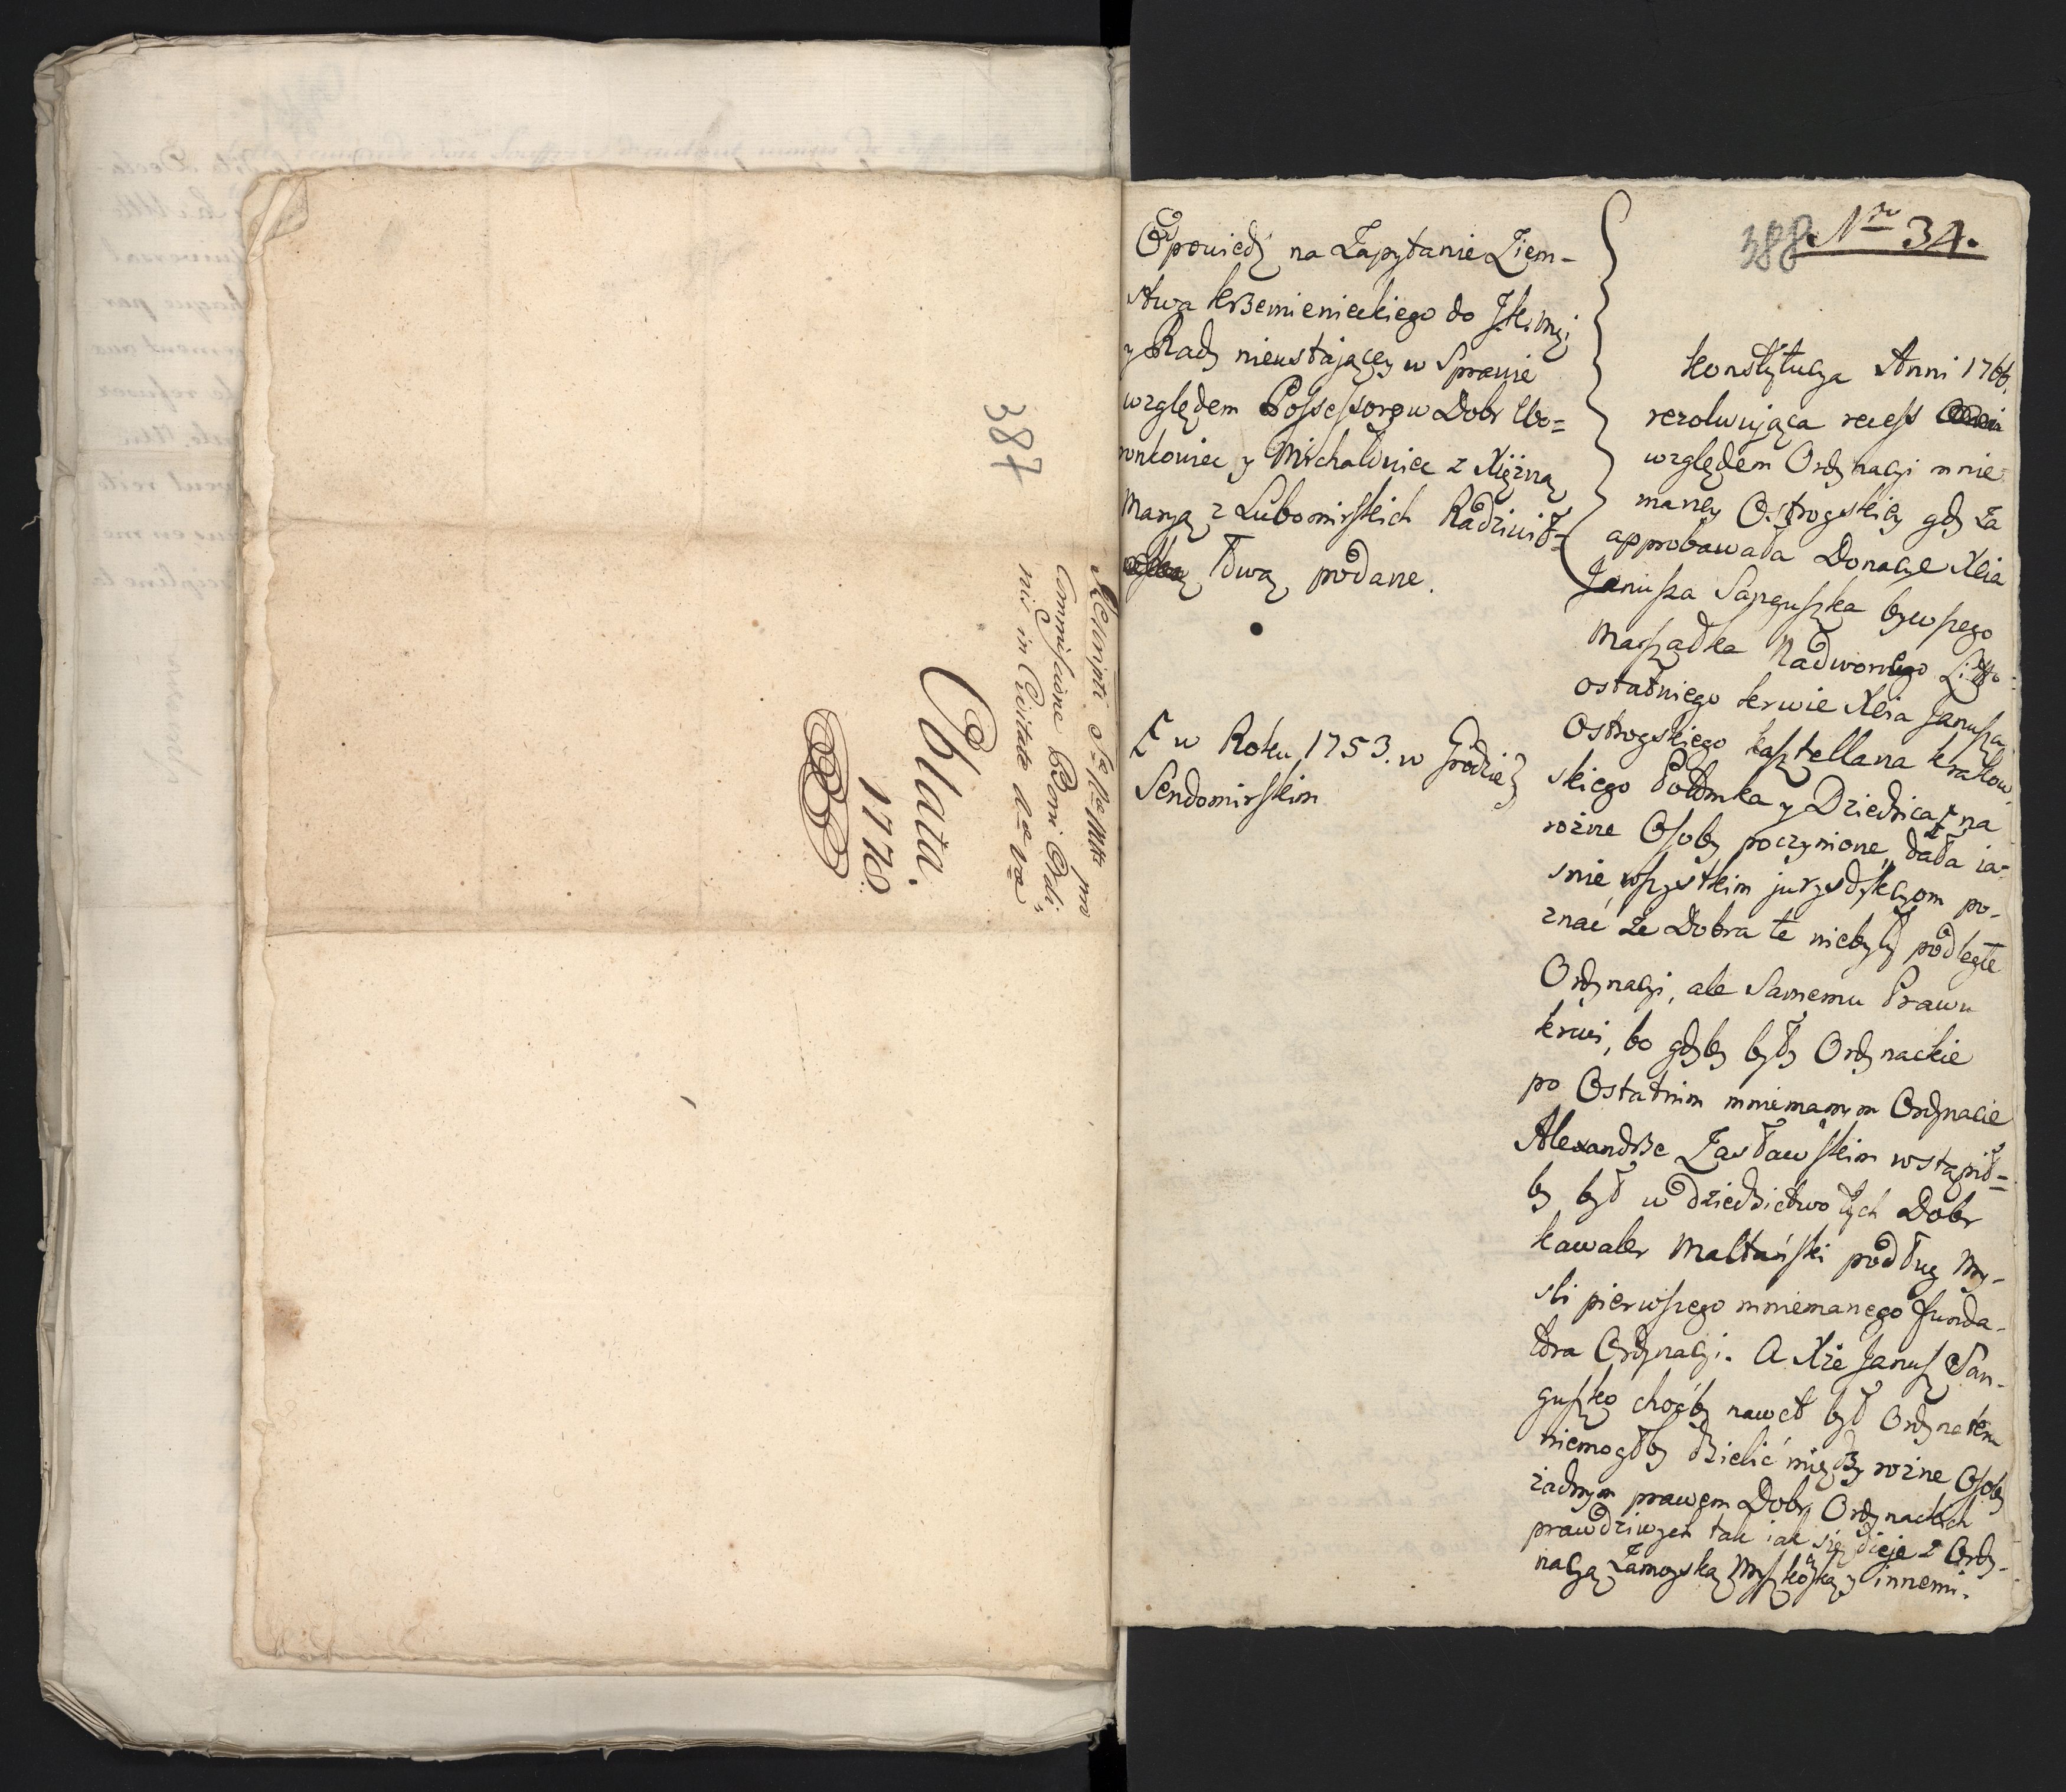 387
Rescripti Sæ Ræ Mttis pro
Commissione Boni Ordi-
nis in Civitate
Oblata.
1778.
Odpowiedź na Zapytanie Ziem-
stwa Krzemienieckiego do JKr Mci
y Rady nieustaiącey w Sprawie
względem Possessorow Dobr Wo-
ronkowiec y Michałowiec z Xiężną
Maryą z Lubomirskich Radziwił-
łową podane.
Ł w Roku 1753. w Grodzie
Sendomirskim
388 Nro 34.
Konstytucya Anni 1766.
rezolwująca recess
względem Ordynacyi mnie-
maney Ostrogskiey gdy za
approbawała Donacye Xcia
Janusza Sanguszka bywszego
Marszałka Nadwornego Litto=
ostatniego krwie Xcia Janusza
Ostrogskiego kasztellana krakow-
skiego Potomka y Dziedzica Ł na
rożne Osoby poczynione, dała ia-
snie wszystkim juryzdykcyom po-
znać że Dobra te niebyły podległe
Ordynacyi, ale Samemu Prawu
krwi, bo gdyby były Ordynackie
po Ostatnim mniemanym Ordynacie
Alexandrze Zasławskim wstąpił=
by był w dziedzictwo tych Dobr
kawaler Maltański podług my-
sli pierwszego mniemanego funda-
tora Ordynacyi. A Xże Janusz San-
guszko choćby nawet był Ordynatem
niemogłby dzielić między rożne Osoby
żadnym prawem Dobr Ordynackich
prawdziwych tak iak się dzieje z Ordy-
nacyą Zamoyską Myszkowską y innemi.